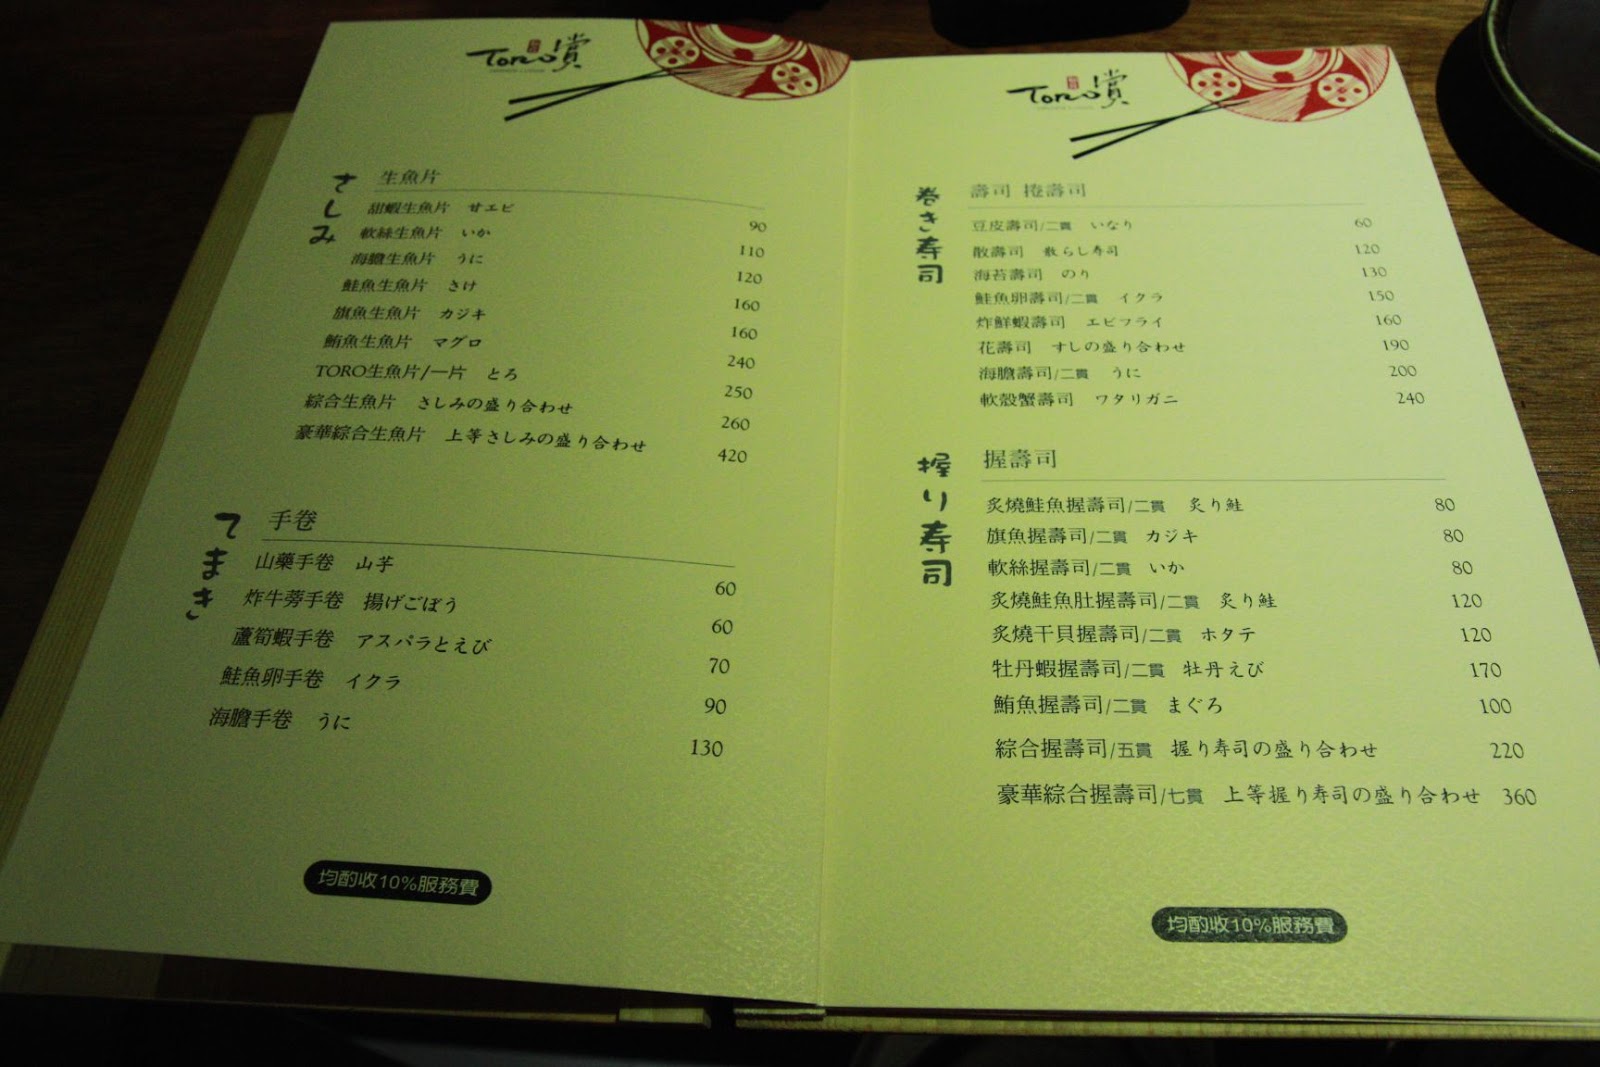 Toro賞
さしみ
生魚片
甜蝦生魚片 甘エビ 90
軟絲生魚片 いか 110
海膽生魚片 うに 120
鮭魚生魚片 さけ 160
旗魚生魚片 カジキ 160
鮪魚生魚片 マグロ 240
TORO生魚片/一片 とろ 250
綜合生魚片 さしみの盛り合わせ 260
豪華綜合生魚片 上等さしみの盛り合わせ 420
てまき
手卷
山藥手卷 山芋 60
炸牛蒡手卷 揚げごぼう 60
蘆筍蝦手卷 アスパラとえび 70
鮭魚卵手卷 イクラ 90
海膽手卷 うに 130
均酌收10%服務費
Toro賞
巻き寿司
壽司 捲壽司
豆皮壽司/二貫 いなり 60
散壽司 散らし寿司 120
海苔壽司 のり 130
鮭魚卵壽司/二貫 イクラ 150
炸鮮蝦壽司 エビフライ 160
花壽司 すしの盛り合わせ 190
海膽壽司/二貫 うに 200
軟殼蟹壽司 ワタリガニ 240
握り寿司
握壽司
炙燒鮭魚握壽司/二貫 炙り鮭 80
旗魚握壽司/二貫 カジキ 80
軟絲握壽司/二貫 いか 80
炙燒鮭魚肚握壽司/二貫 炙り鮭 120
炙燒干貝握壽司/二貫 ホタテ 120
牡丹蝦握壽司/二貫 牡丹えび 170
鮪魚握壽司/二貫 まぐろ 100
綜合握壽司/五貫 握り寿司の盛り合わせ 220
豪華綜合握壽司/七貫 上等握り寿司の盛り合わせ 360
均酌收10%服務費